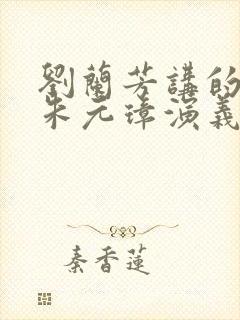 劉蘭芳講的
朱元璋演義
秦香蓮